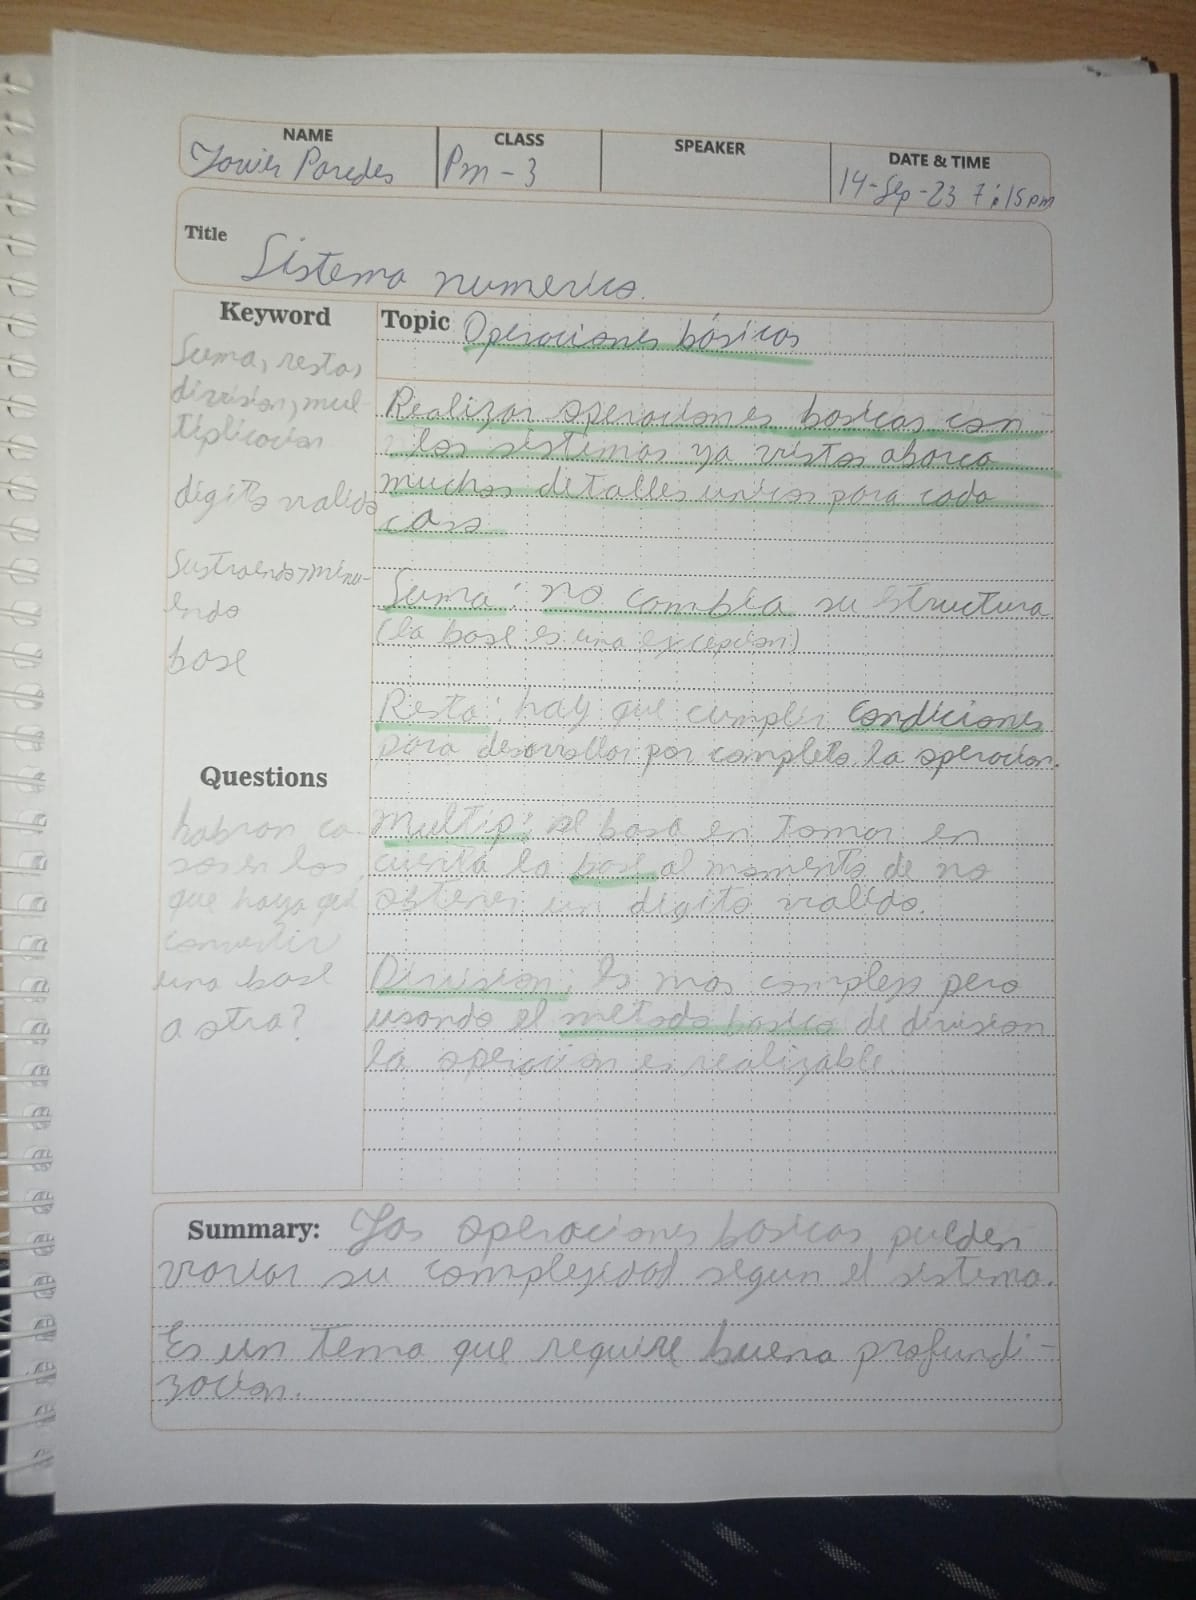 NAME
Javier Paredes
CLASS
Pm - 3
SPEAKER
DATE & TIME
14-Sep-23 7:15pm
Title
Sistema numerico.
Keyword
Suma, resta,
división, mul-
tiplicación
digito valido
Sustraendo, minu-
endo
base
Questions
habran ca
sos en los
que haya que
convertir
una base
a otra?
Topic Operaciones básicas
Realizar operaciones basicas con
los sistemas ya vistos abarca
muchos detalles unicos para cada
caso
Suma: no cambia su structura
(la base es una excepcion)
Resta: hay que cumplir condiciones
para desarrollar por completo la operación.
Multip: se basa en tomar en
cuenta la base al momento de no
obtener un digito valido.
Division: Es mas complejo pero
usando el metodo basico de division
la operacion es realizable.
Summary: Las operaciones basicas pueden
variar su complejidad segun el sistema.
Es un tema que require buena profundi-
zación.